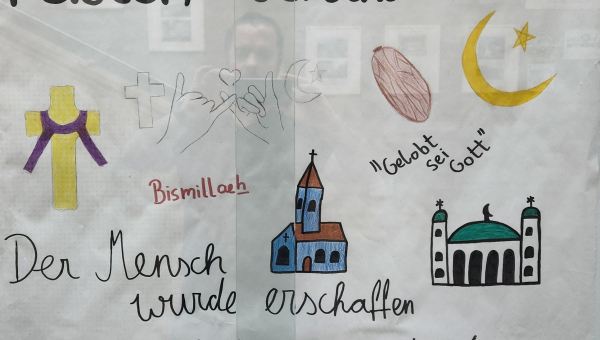 "Gelobt
sei
Gott"
Bismillaeh
Der Mensch
wurde erschaffen